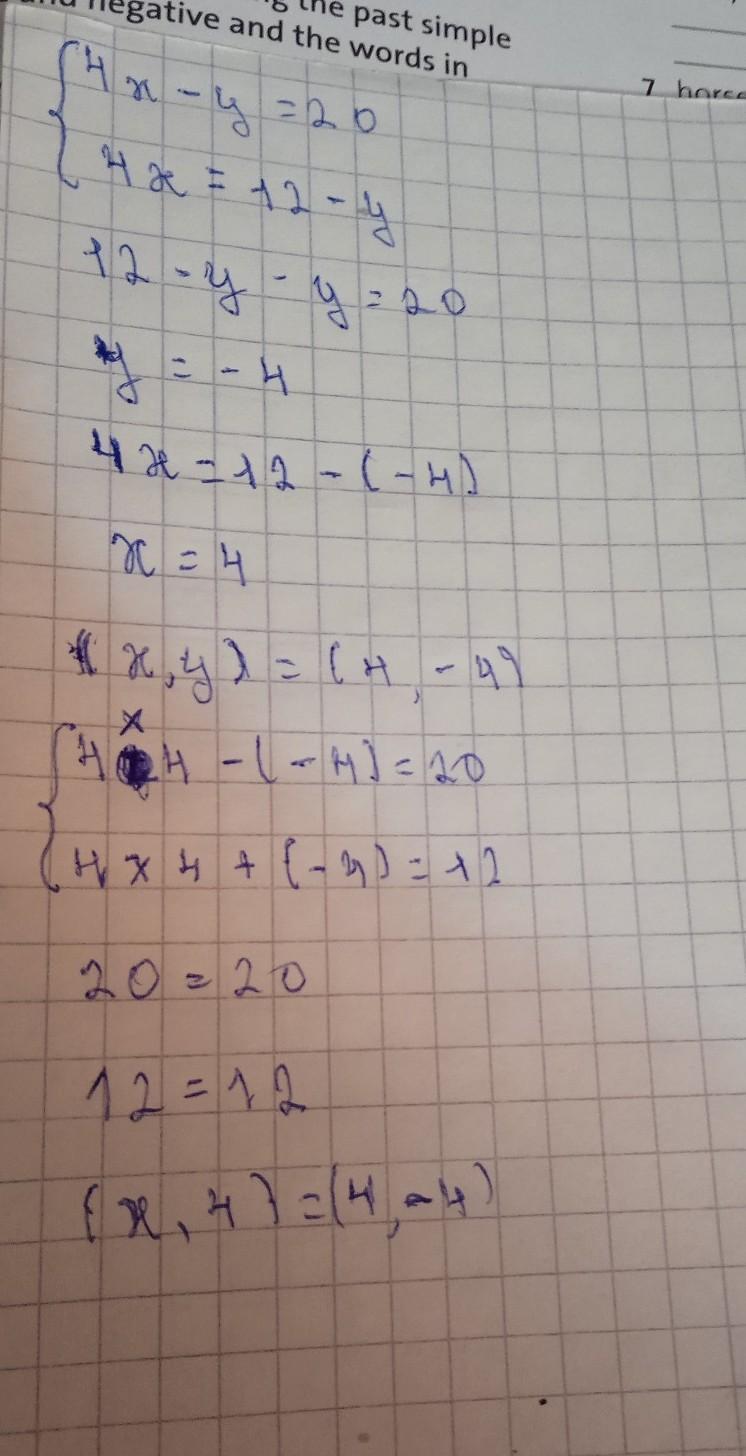 the past simple
negative and the words in
7 horse
4x - y = 20
4x = 12 - y
12 - y - y = 20
y = - 4
4x = 12 - (- 4)
x = 4
(x, y) = (4, - 4)
4 × 4 - (- 4) = 20
4 × 4 + (- 4) = 12
20 = 20
12 = 12
(x, 4) = (4, - 4)